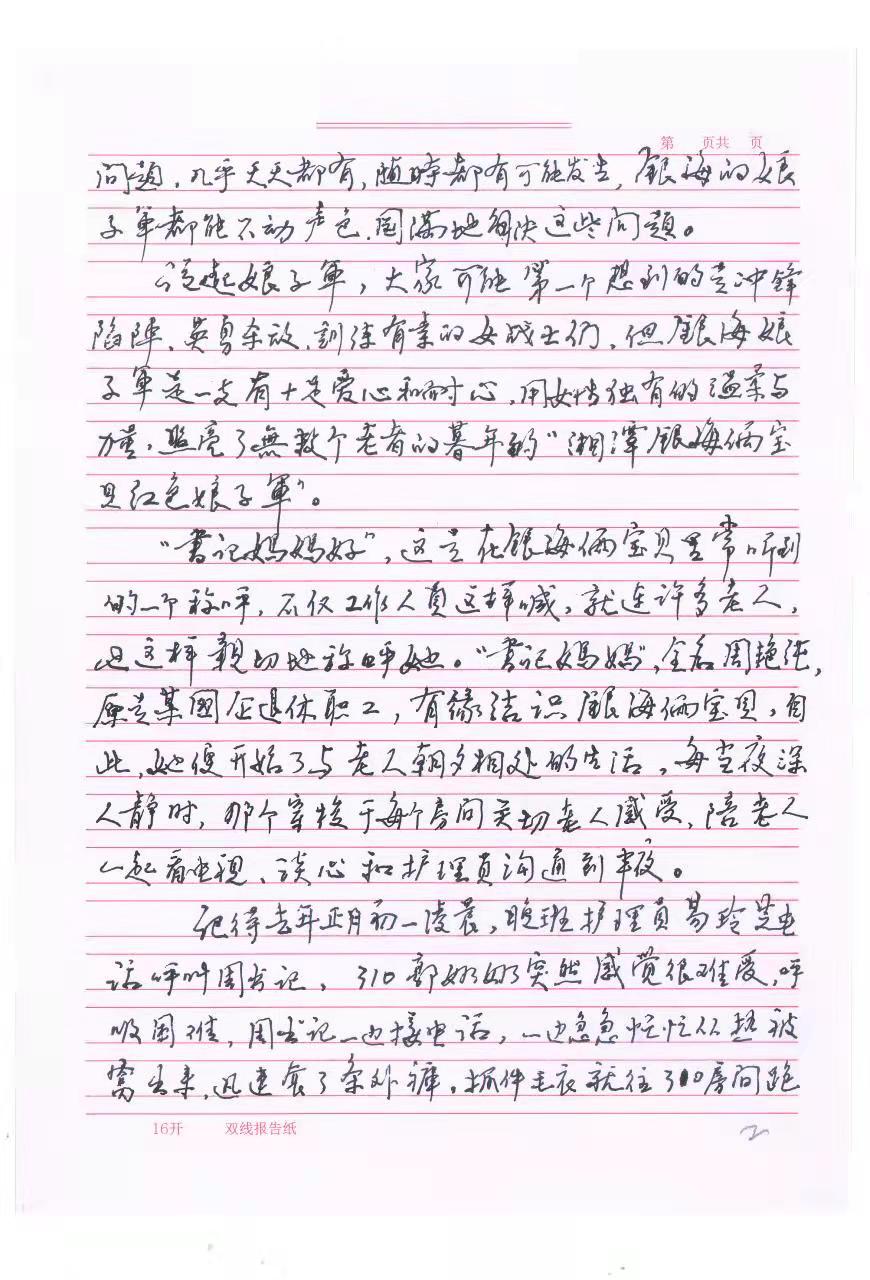 第 页共 页
问题，几乎天天都有，随時都有可能发生，銀海的娘
子軍都能不动声色，圆满地解决这些问题。
说起娘子軍，大家可能第一个想到的是冲鋒
陷阵、英勇杀敌、訓练有素的女战士们，但銀海娘
子軍是一支有十足爱心和耐心，用女性独有的温柔与
力量，照亮了無数个老者的暮年的“湘潭銀海俩宝
貝红色娘子軍”。
“書记媽媽好”，这是在銀海俩宝贝里常听到
的一个称呼，不仅工作人員这样喊，就连许多老人，
也这样親切地称呼她。“書记媽媽”，全名周艳
原是某國企退休职工，有缘结识銀海俩宝贝，自
此，她便开始了与老人朝夕相处的生活，每当夜深
人静时，那个穿梭于每个房间关切老人感受，陪老人
一起看电视、谈心和护理員沟通到半夜。
记得去年正月初一凌晨，晚班护理員易玲芝电
话呼叫周书记，310郭娭毑突然感觉很难受，呼
吸困难，周书记一边接电话，一边急急忙忙从热被
窝出来，迅速套了条外裤，抓件毛衣就往310房间跑
16开 双线报告纸
2